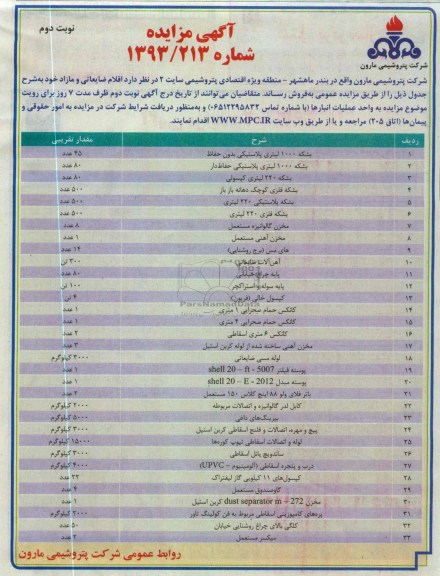 نوبت دوم
آگهی مزایده
شماره ۱۳۹۳/۲۱۳
شرکت پتروشیمی مارون
شرکت پتروشیمی مارون واقع در بندر ماهشهر - منطقه ویژه اقتصادی پتروشیمی سایت ۲ در نظر دارد اقلام ضایعاتی و مازاد خود به‌شرح
جدول ذیل را از طریق مزایده عمومی به‌فروش رساند. متقاضیان می‌توانند از تاریخ درج آگهی نوبت دوم ظرف مدت ۷ روز برای رویت
موضوع مزایده به واحد عملیات انبارها (با شماره تماس ۰۶۵۱۲۲۹۵۸۳۲) و به‌منظور دریافت شرایط شرکت در مزایده به امور حقوقی و
پیمان‌ها (اتاق ۲۰۵) مراجعه و یا از طریق وب سایت WWW.MPC.IR اقدام نمایند.
ردیف شرح مقدار تقریبی
۱ بشکه ۱۰۰۰ لیتری پلاستیکی بدون حفاظ ۴۵ عدد
۲ بشکه ۱۰۰۰ لیتری پلاستیکی حفاظ‌دار ۸۰ عدد
۳ بشکه ۲۲۰ لیتری کپسولی ۸۰ عدد
۴ بشکه فلزی کوچک دهانه باز باز ۵۰۰ عدد
۵ بشکه پلاستیکی ۲۲۰ لیتری ۵۰۰ عدد
۶ بشکه فلزی ۲۲۰ لیتری ۵۰۰ عدد
۷ مخزن گالوانیزه مستعمل ۸۰ عدد
۸ مخزن آهنی مستعمل ۱ عدد
۹ های مس (برج روشنایی) ۱۴ عدد
۱۰ آهن‌آلات ضایعاتی ۳۰۰ تن
۱۱ پایه چراغ خیابانی ۸۰ عدد
۱۲ پایه سوله و استراکچر ۱۰۰ تن
۱۳ کپسول خالی (فریون) ۴ تن
۱۴ کانکس حمام صحرایی ۱ متری ۱ عدد
۱۵ کانکس حمام صحرایی ۲ متری ۱ عدد
۱۶ کانکس ۶ متری اسقاطی ۲ عدد
۱۷ مخزن آهنی ساخته شده از لوله کربن استیل ۳ عدد
۱۸ لوله مسی ضایعاتی ۳۰۰۰ کیلوگرم
۱۹ پوسته فیلتر shell 20 – ft - 5007 ۱ عدد
۲۰ پوسته مبدل shell 20 – E - 2012 ۱ عدد
۲۱ باتر فلای ولو ۸۸ اینچ کلاس ۱۵۰ مستعمل ۲ عدد
۲۲ کابل لدر گالوانیزه و اتصالات مربوطه ۲۰۰۰ کیلوگرم
۲۳ بیرینگ‌های داغی ۵۰۰۰ کیلوگرم
۲۴ پیچ و مهره، اتصالات و فلنج اسقاطی کربن استیل ۳۰۰۰ کیلوگرم
۲۵ لوله و اتصالات اسقاطی تیوپ کوره‌ها ۱۵۰۰۰ کیلوگرم
۲۶ ساندویچ پانل اسقاطی ۳۰۰۰ کیلوگرم
۲۷ درب و پنجره اسقاطی (آلومینیوم – UPVC) ۴۰۰۰ کیلوگرم
۲۸ کپسول‌های ۱۱ کیلویی گاز لیفتراک ۲۳ عدد
۲۹ گاوصندوق مستعمل ۴ عدد
۳۰ مخزن dust separator m – 272 کربن استیل ۱ عدد
۳۱ پره‌های کامپوزیتی اسقاطی مربوط به فن کولینگ تاور ۲۰۰۰ کیلوگرم
۳۲ کلگی بالای چراغ روشنایی خیابان ۵۰ عدد
۳۳ میکسر مستعمل ۲ عدد
ParsNamadData
روابط عمومی شرکت پتروشیمی مارون